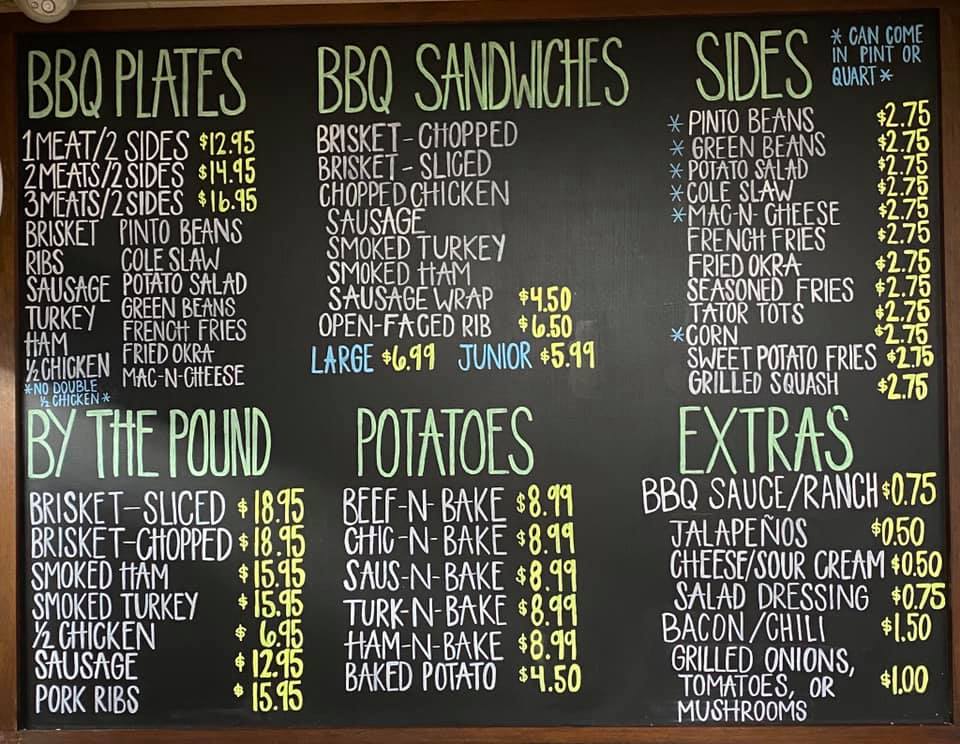 BBQ PLATES
1 MEAT/2 SIDES $12.95
2 MEATS/2 SIDES $14.95
3 MEATS/2 SIDES $16.95
BRISKET PINTO BEANS
RIBS COLE SLAW
SAUSAGE POTATO SALAD
TURKEY GREEN BEANS
HAM FRENCH FRIES
½ CHICKEN FRIED OKRA
*NO DOUBLE MAC-N-CHEESE
½ CHICKEN*
BBQ SANDWICHES
BRISKET - CHOPPED
BRISKET - SLICED
CHOPPED CHICKEN
SAUSAGE
SMOKED TURKEY
SMOKED HAM
SAUSAGE WRAP $4.50
OPEN-FACED RIB $6.50
LARGE $6.99 JUNIOR $5.99
SIDES
* CAN COME
IN PINT OR
QUART *
* PINTO BEANS $2.75
* GREEN BEANS $2.75
* POTATO SALAD $2.75
* COLE SLAW $2.75
* MAC-N-CHEESE $2.75
FRENCH FRIES $2.75
FRIED OKRA $2.75
SEASONED FRIES $2.75
TATOR TOTS $2.75
* CORN $2.75
SWEET POTATO FRIES $2.75
GRILLED SQUASH $2.75
BY THE POUND
BRISKET-SLICED $18.95
BRISKET-CHOPPED $18.95
SMOKED HAM $15.95
SMOKED TURKEY $15.95
½ CHICKEN $6.95
SAUSAGE $12.95
PORK RIBS $15.95
POTATOES
BEEF-N-BAKE $8.99
CHIC-N-BAKE $8.99
SAUS-N-BAKE $8.99
TURK-N-BAKE $8.99
HAM-N-BAKE $8.99
BAKED POTATO $4.50
EXTRAS
BBQ SAUCE/RANCH $0.75
JALAPEÑOS $0.50
CHEESE/SOUR CREAM $0.50
SALAD DRESSING $0.75
BACON/CHILI $1.50
GRILLED ONIONS,
TOMATOES, OR $1.00
MUSHROOMS